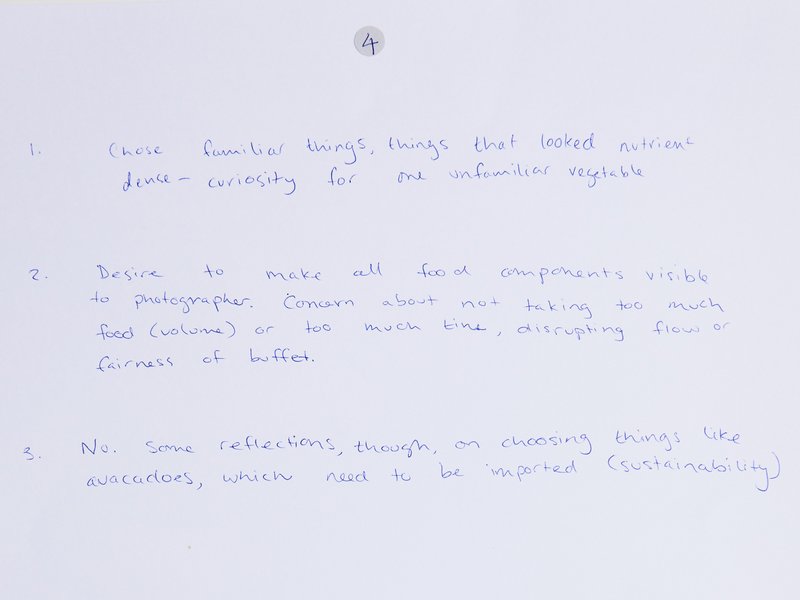 4
1. Chose familiar things, things that looked nutrient
dense - curiosity for one unfamiliar vegetable
2. Desire to make all food components visible
to photographer. Concern about not taking too much
food (volume) or too much time, disrupting flow or
fairness of buffet.
3. No. Some reflections, though, on choosing things like
avacadoes, which need to be imported (sustainability)